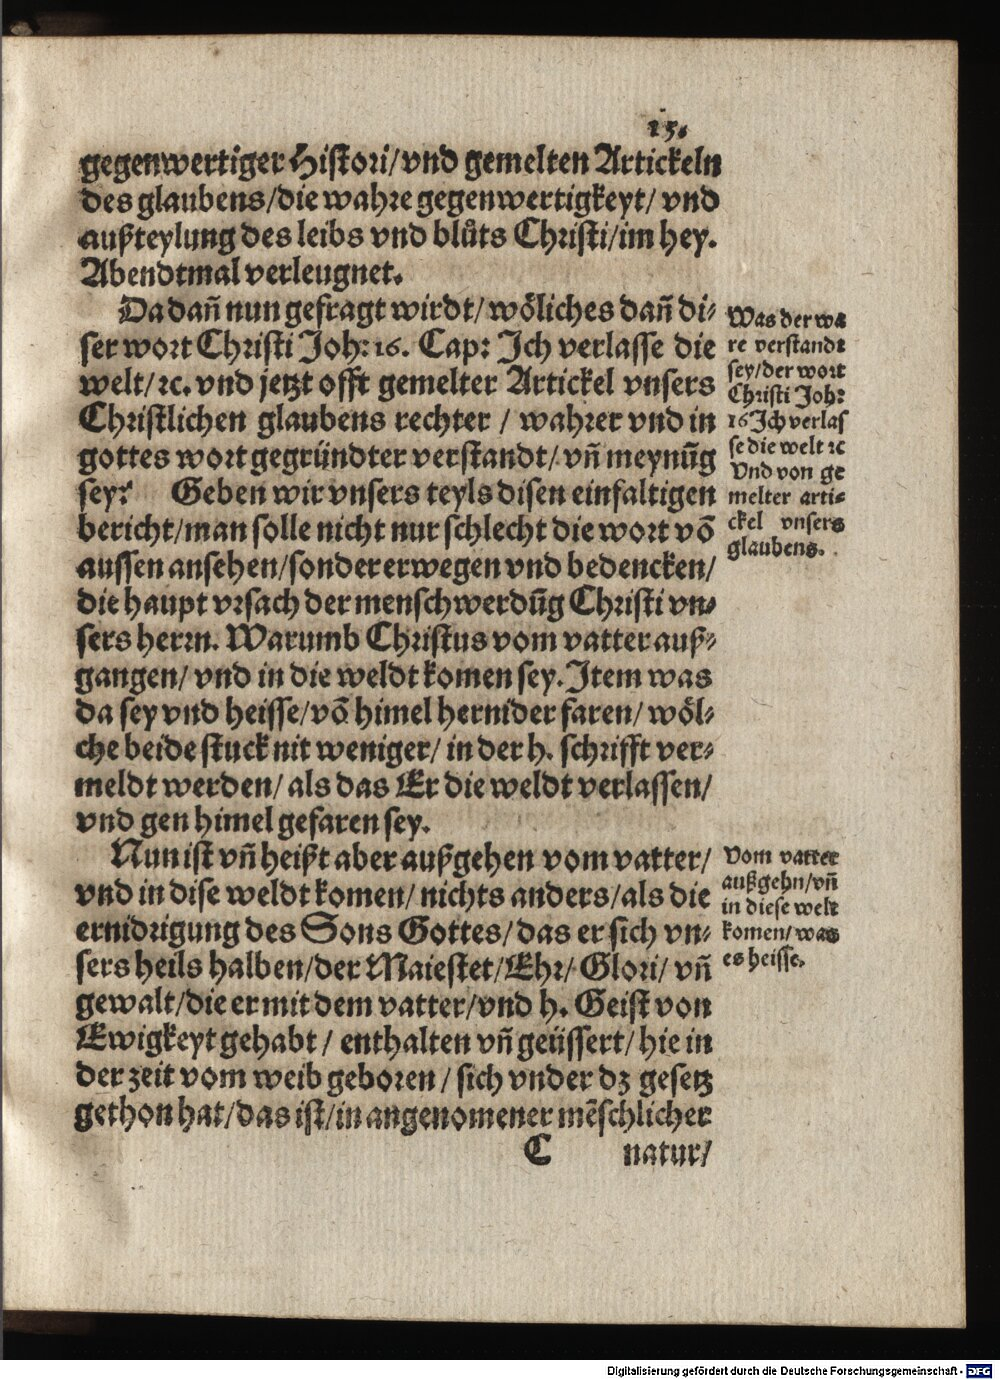 15.
gegenwertiger Histori/vnd gemelten Artickeln
des glaubens/die wahre gegenwertigkeyt/ vnd
außteylung des leibs vnd blůts Christi/im hey.
Abendtmal verleugnet.
Da dañ nun gefragt wirdt/ wöliches dañ di-
ser wort Christi Joh: 16. Cap: Ich verlasse die
welt/ ꝛc. vnd jetzt offt gemelter Artickel vnsers
Christlichen glaubens rechter / wahrer vnd in
gottes wort gegründter verstandt/ vñ meynũg
sey? Geben wir vnsers teyls disen einfaltigen
bericht/man solle nicht nur schlecht die wort võ
aussen ansehen/sonder erwegen vnd bedencken/
die haupt vrsach der menschwerdũg Christi vn-
sers herrn. Warumb Christus vom vatter auß-
gangen/ vnd in die weldt komen sey. Item was
da sey vnd heisse/võ himel hernider faren/ wöl-
che beide stuck nit weniger/ in der h. schrifft ver-
meldt werden/ als das Er die weldt verlassen/
vnd gen himel gefaren sey.
Nun ist vñ heißt aber außgehen vom vatter/
vnd in dise weldt komen/ nichts anders/als die
ernidrigung des Sons Gottes/das er sich vn-
sers heils halben/der Maiestet/Ehr/ Glori/ vñ
gewalt/die er mit dem vatter/vnd h. Geist von
Ewigkeyt gehabt / enthalten vñ geüssert/ hie in
der zeit vom weib geboren / sich vnder dz gesetz
gethon hat/das ist/in angenomener mẽschlicher
C natur/
Was der wa
re verstandt
sey/der wort
Christi Joh:
16 Ich verlas
se die welt ꝛc
Vnd von ge
melter arti-
ckel vnsers
glaubens.
Vom vatter
außgehn/vñ
in diese welt
komen/was
es heisse.
Digitalisierung gefördert durch die Deutsche Forschungsgemeinschaft - DFG